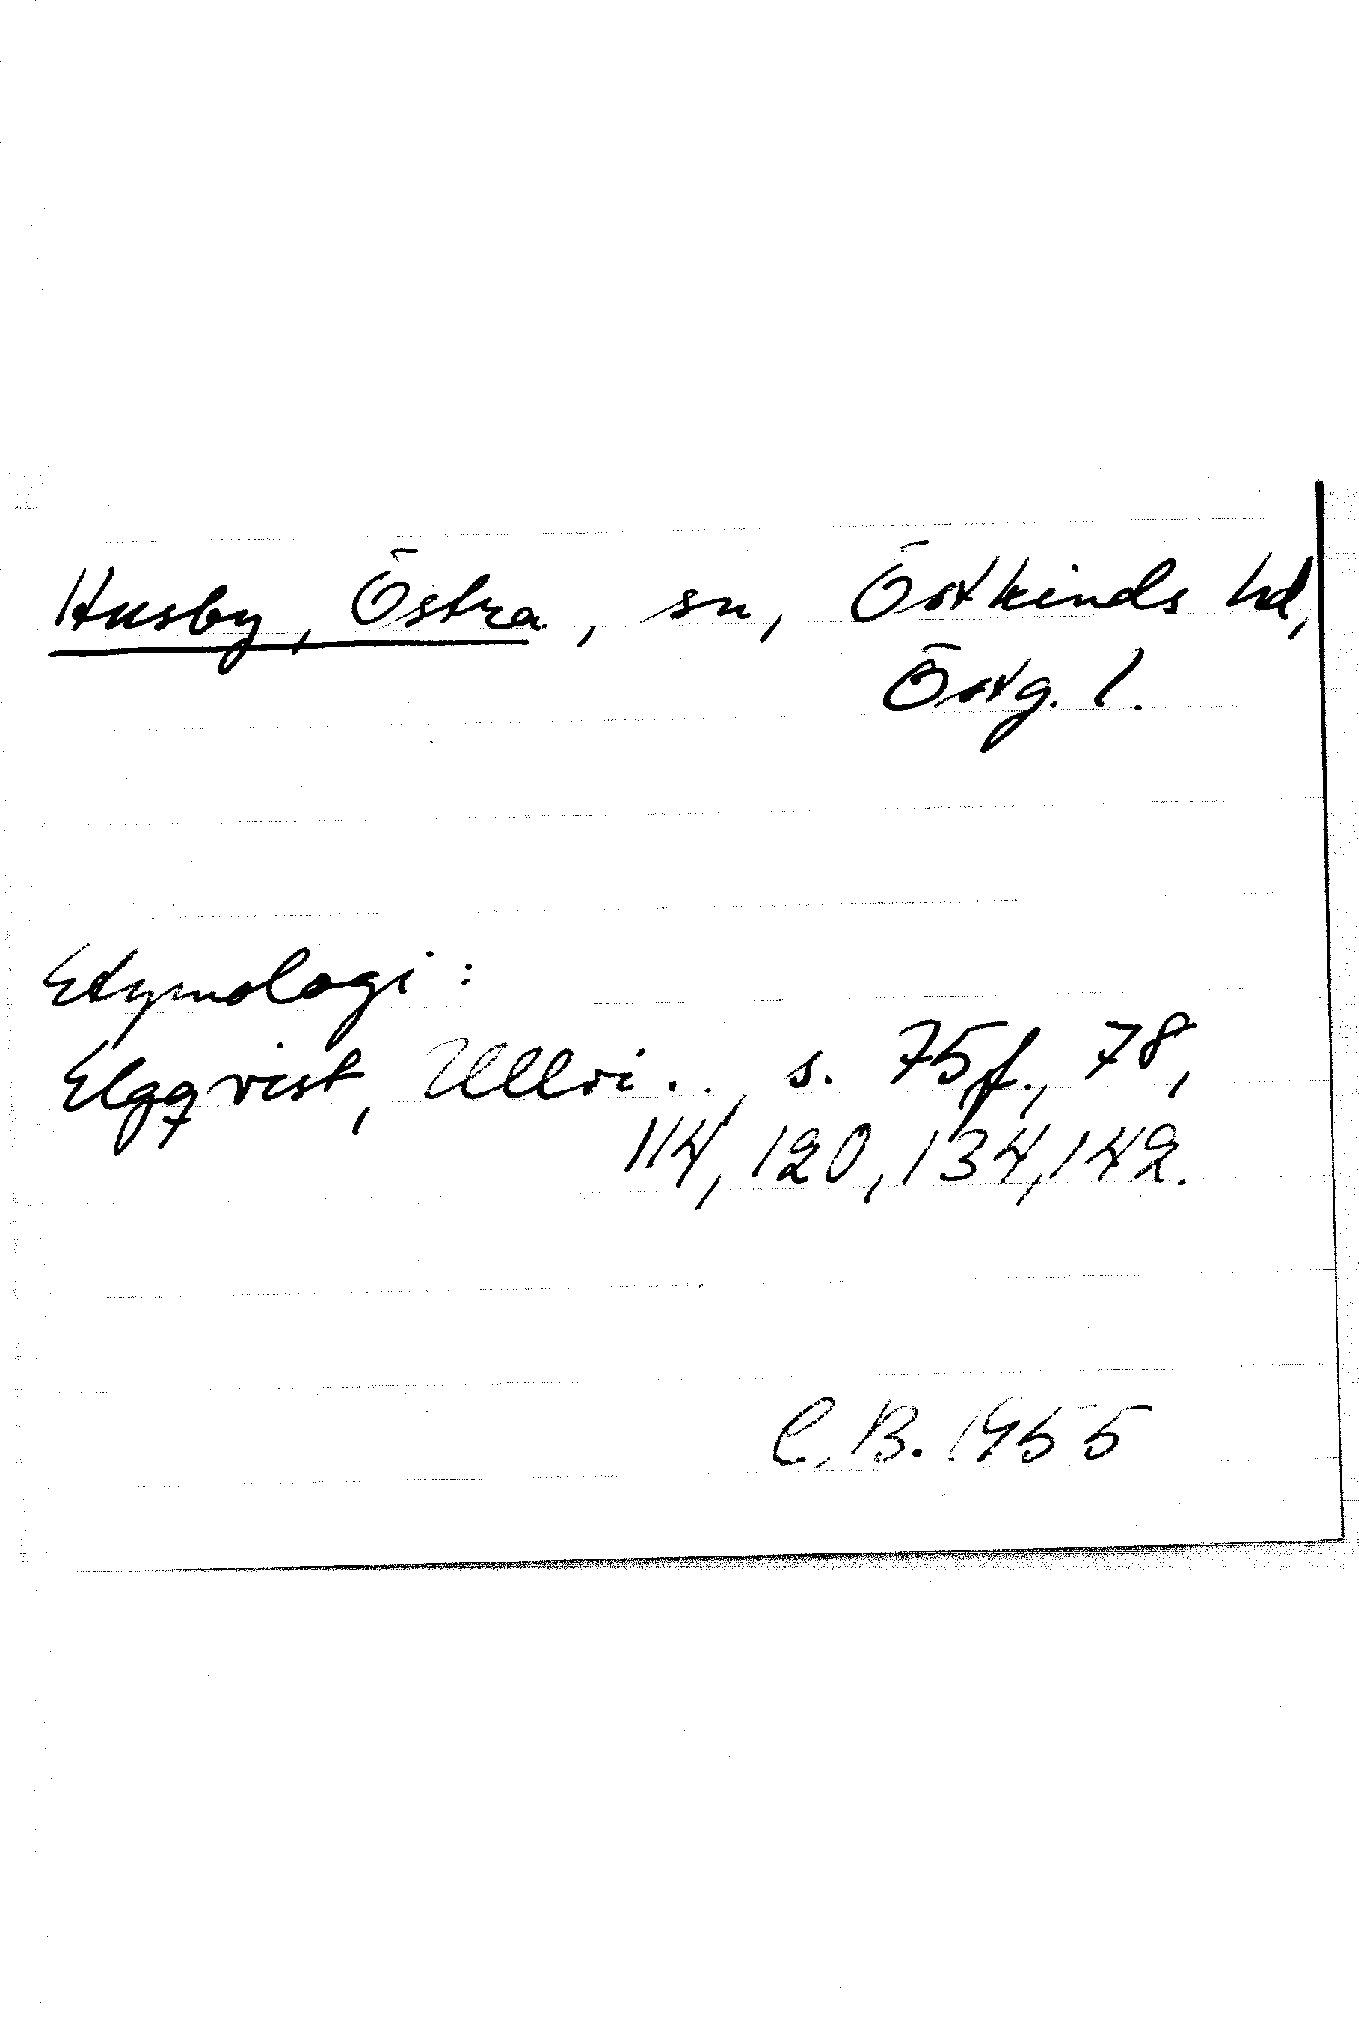 Husby, Östra, sn, Östkinds hd,
Östg. l.
Etymologi:
Elgqvist, Ullvi.., s. 75f., 78,
114, 120, 134, 142.
C. B. 1955